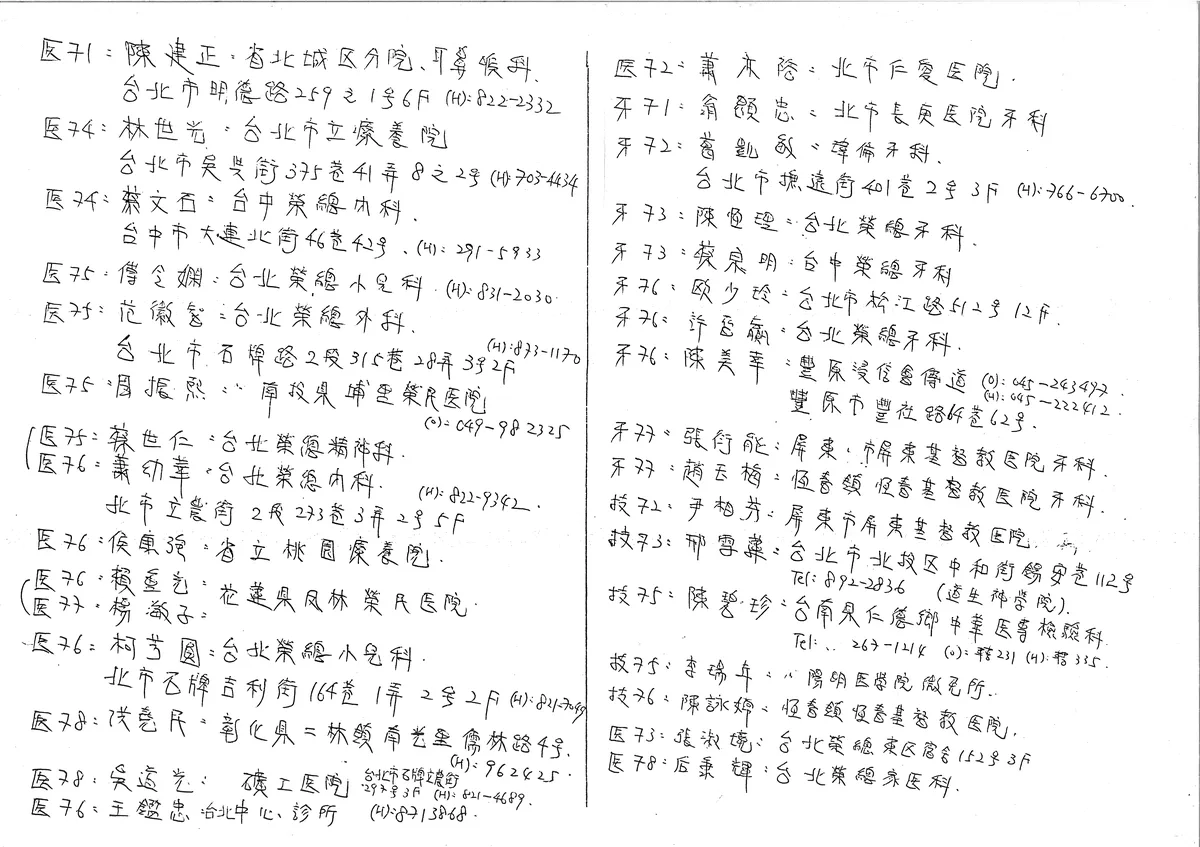 医71：陳建正：省北城区分院、耳鼻喉科.
台北市明德路259之1号6F (H):822-2332
医74：林世光：台北市立療養院
台北市吳興街375巷41弄8之2号 (H):703-4434
医74：蔡文石：台中榮總內科.
台中市大連北街46巷42号. (H):291-5933
医75：傅令嫻：台北榮總小兒科. (H):831-2030.
医75：范徽智：台北榮總外科.
台北市石牌路2段315巷28弄3号2F (H):873-1170
医75：周振熙：〃 南投県埔里榮民医院
(O):049-982325
医75：蔡世仁：台北榮總精神科.
医76：蕭幼華：台北榮總內科.
北市立農街2段273巷3弄2号5F (H):822-9342.
医76：侯東強：省立桃園療養院.
医76：賴重光：
医77：楊淑子：花蓮県鳳林榮民医院.
医76：柯芳圓：台北榮總小兒科.
北市石牌吉利街164巷1弄2号2F (H):821-7049
医78：洪堯民：彰化県二林鎮南光里儒林路4号.
(H):962425.
医78：吳道光：礦工医院 台北市石牌立農街
297号3F (H):821-4689.
医76：王鑑忠：台北中心診所 (H):8713868.
医72：蕭 北市仁愛医院.
牙71：翁顗忠：北市長庚医院牙科
牙72：葛凱敏：偉倫牙科.
台北市撫遠街401巷2号3F (H):766-6700.
牙73：陳恆理：台北榮總牙科.
牙73：蔡泉明：台中榮總牙科
牙76：欧少玲：台北市松江路512号12F.
牙76：許 台北榮總牙科.
牙76：陳美華：豐原浸信會傳道 (O):045-243497
(H):045-222412.
豐原市豐社路64巷62号.
牙77：張衍能：屏東.市屏東基督教医院牙科.
牙77：趙玉梅：恆春鎮恆春基督教医院牙科.
技72：尹柏芬：屏東市屏東基督教医院.
技73：邢雪 台北市北投区中和街錫安巷112号
Tel：892-2836 (道生神学院).
技75：陳碧珍：台南県仁德鄉中華医專檢驗科.
Tel：.. 267-1214 (O):轉231 (H):轉335.
技75：李瑞年：〃 陽明医学院微免所.
技76：陳詠婷：恆春鎮恆春基督教医院.
医73：張淑嬈：台北榮總東区宿舍152号3F
医78：后秉輝：台北榮總家医科.